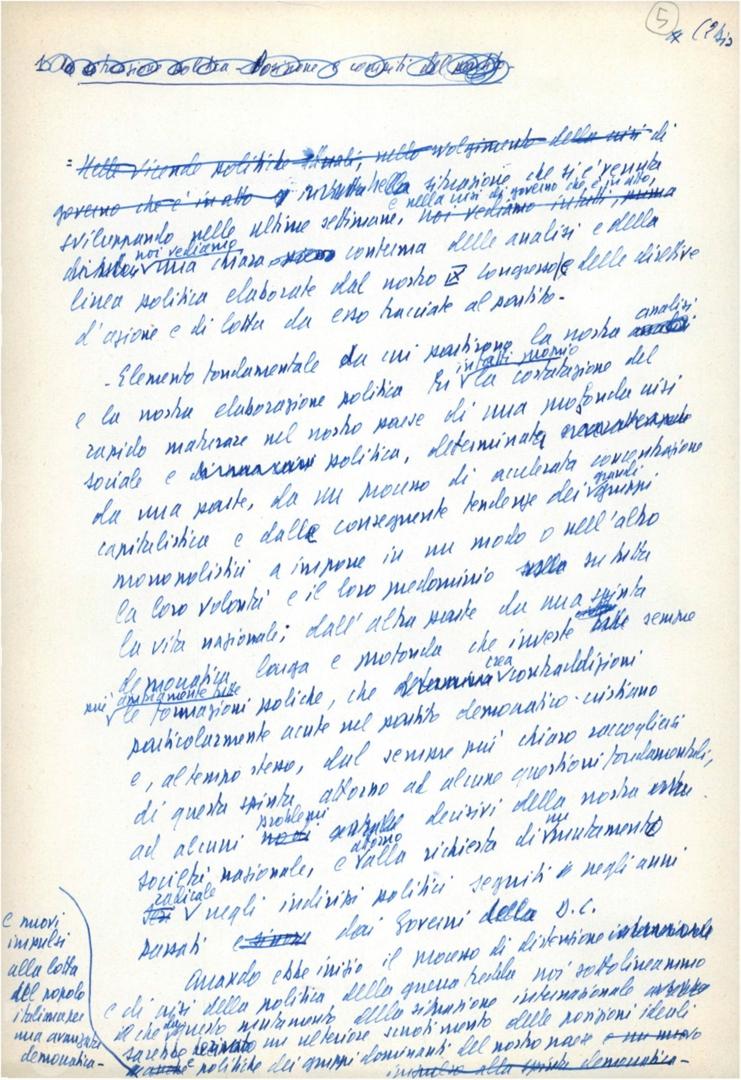 5
1) La situazione politica - Posizione e compiti del partito -
= Nelle vicende politiche attuali, nello svolgimento della crisi di
governo che è in atto e in tutta la situazione che si è venuta
sviluppando nelle ultime settimane, e nella crisi di governo che è in atto, noi vediamo infatti, prima
noi vediamo una chiara conferma delle analisi e della
linea politica elaborate dal nostro IX congresso e delle direttive
d'azione e di lotta da esso tracciate al partito -
- Elemento fondamentale da cui partirono la nostra analisi
e la nostra elaborazione politica fu infatti proprio la costatazione del
rapido maturare nel nostro paese di una profonda crisi
sociale e politica, determinata
da una parte, da un processo di accelerata concentrazione
capitalistica e dalle conseguente tendenze dei grandi gruppi
monopolistici a imporre in un modo o nell'altro
la loro volontà e il loro predominio su tutta
la vita nazionale; dall'altra parte da una spinta
democratica larga e profonda che investe sempre
più ampiamente tutte le formazioni poliche, che crea contraddizioni
particolarmente acute nel partito democratico-cristiano
e, al tempo stesso, dal sempre più chiaro raccogliersi
di questa spinta attorno ad alcune questioni fondamentali,
ad alcuni problemi decisivi della nostra
società nazionale, e attorno alla richiesta di un mutamento
radicale negli indirizzi politici seguiti negli anni
passati dai Governi della D.C.
Quando ebbe inizio il processo di distensione internazionale
e di crisi della politica della guerra fredda noi sottolineammo
il che questo mutamento della situazione internazionale
sarebbe un ulteriore scuotimento delle posizioni ideali
e politiche dei gruppi dominanti del nostro paese e un nuovo
impulso alla spinta democratica -
e nuovi
impulsi
alla lotta
del popolo
italiano per
una avanzata
democratica -